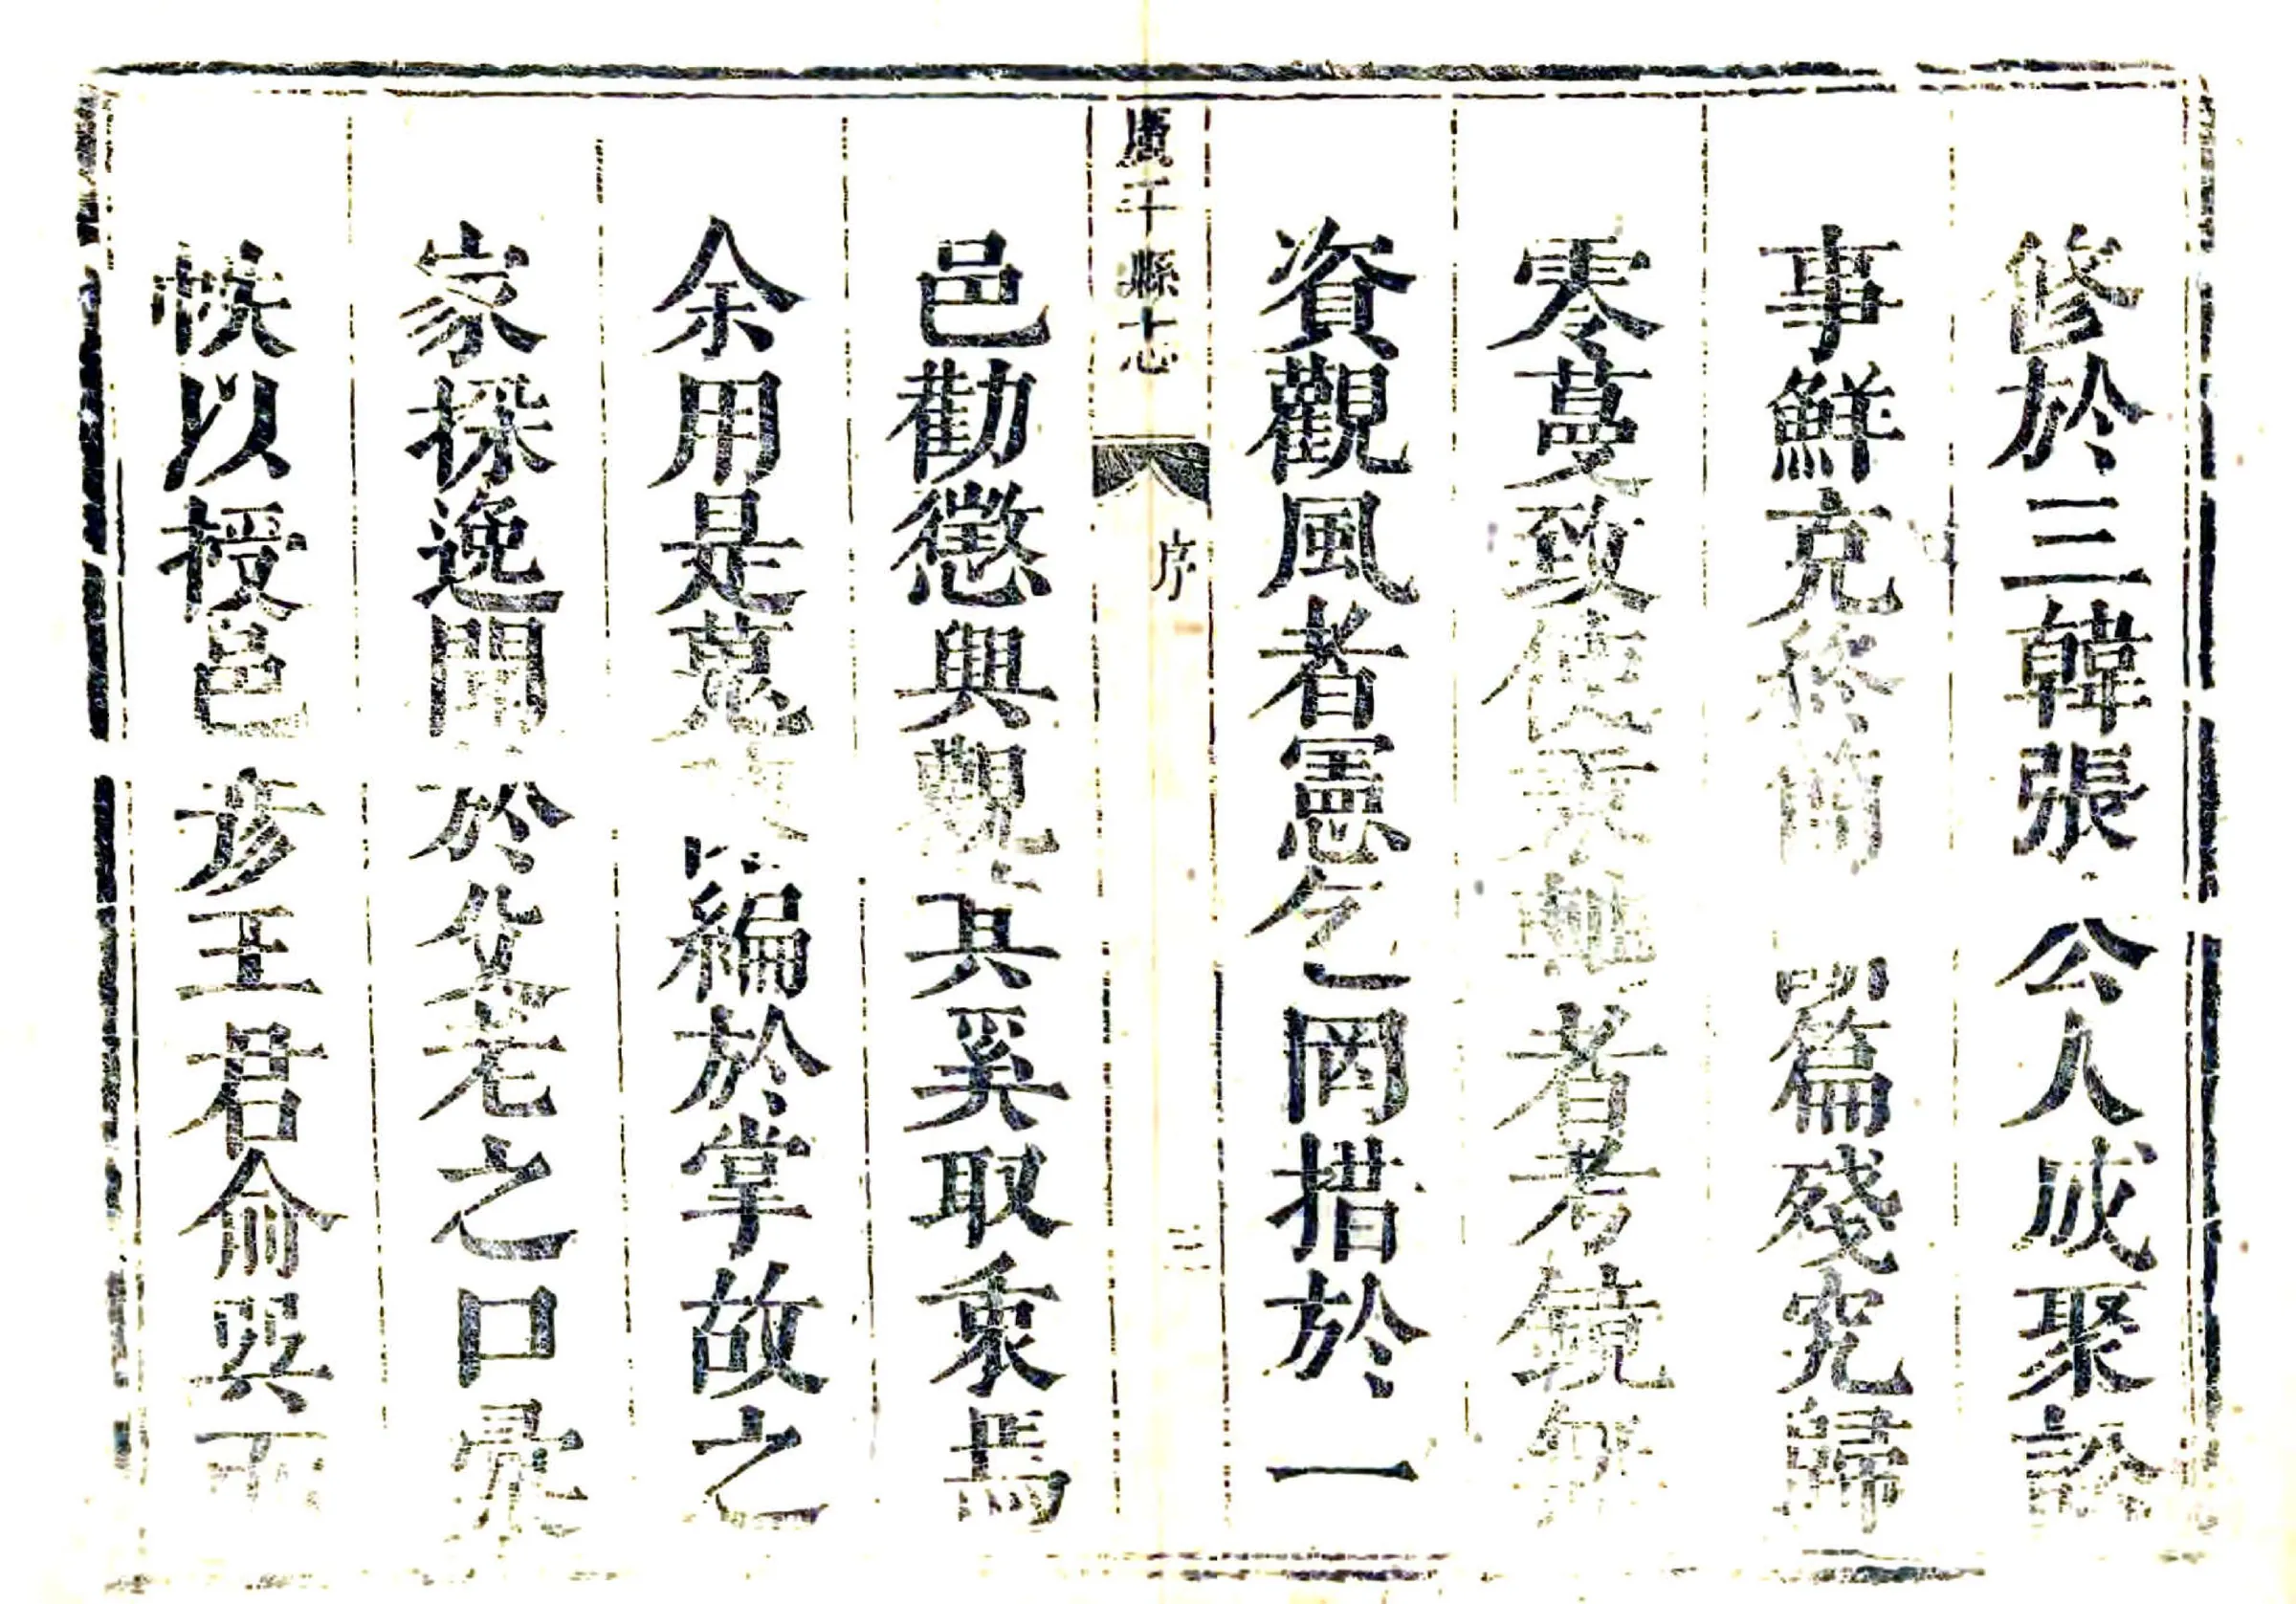 修於三韓張公人成聚訟
事鮮克終簡篇殘究歸
零蔓致使乘軺者考鏡無
資觀風者憲乞罔措於一
廣平縣志
序
二
邑勸懲興觀其奚取衷焉
余用是蒐編於掌故之
家採逸聞於父老之口彙
帙以授邑彥王君俞巽